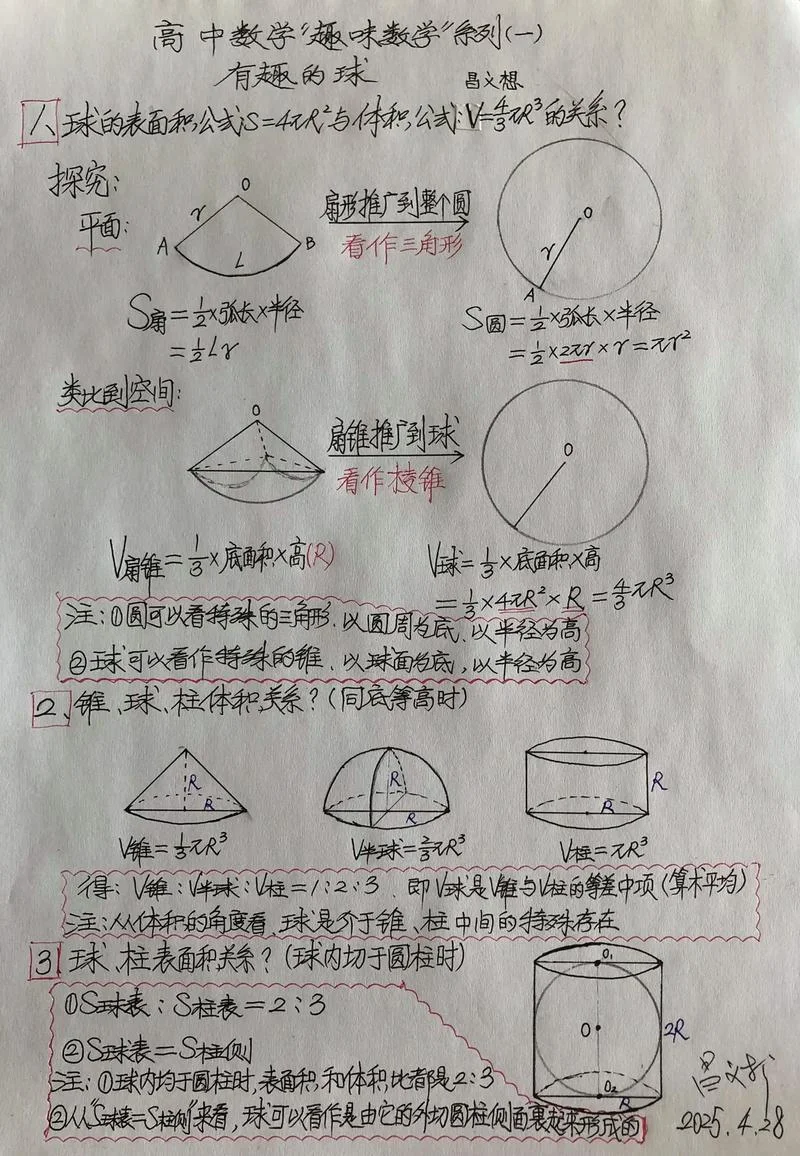 高中数学"趣味数学"系列(一)
有趣的球 昌义想
1、球的表面积公式S=4πR²与体积公式:V=4/3πR³的关系?
探究:
平面:
O
r
A
B
L
扇形推广到整个圆
看作三角形
O
r
A
S扇=1/2×弧长×半径
=1/2Lr
S圆=1/2×弧长×半径
=1/2×2πr×r=πr²
类比到空间:
O
扇锥推广到球
看作棱锥
O
V扇锥=1/3×底面积×高(R)
V球=1/3×底面积×高
=1/3×4πR²×R=4/3πR³
注:①圆可以看特殊的三角形.以圆周为底.以半径为高
②球可以看作特殊的锥.以球面为底,以半径为高
2、锥、球、柱体积关系?(同底等高时)
R
R
R
R
R
R
V锥=1/3πR³
V半球=2/3πR³
V柱=πR³
得:V锥:V半球:V柱=1:2:3.即V球是V锥与V柱的等差中项(算术平均)
注:从体积的角度看.球是介于锥、柱中间的特殊存在
3、球、柱表面积关系?(球内切于圆柱时)
①S球表:S柱表=2:3
②S球表=S柱侧
注:①球内均于圆柱时,表面积和体积比都是2:3
②从"S球表=S柱侧"来看,球可以看作是由它的外切圆柱侧面裹起来形成的
O₁
O
2R
O₂
R
昌义想
2025.4.28